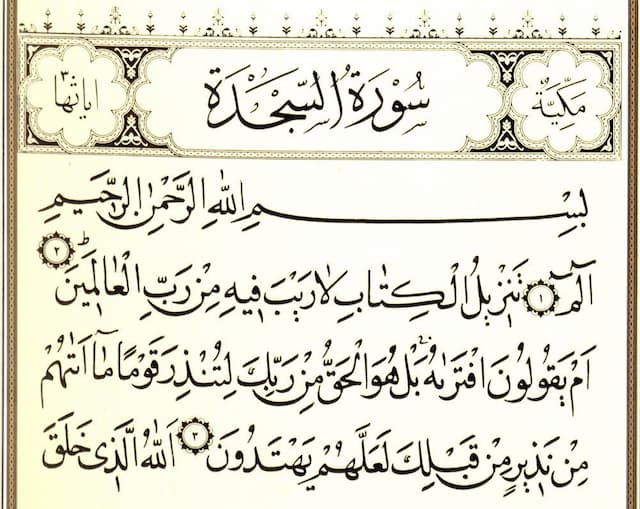 مَكِّيَّةٌ سُورَةُ السَّجْدَةِ اٰيَاتُهَا ٣٠
بِسْمِ اللّٰهِ الرَّحْمٰنِ الرَّحِيمِ
الٓمٓ ١ تَنْزِيلُ الْكِتَابِ لَا رَيْبَ فِيهِ مِنْ رَبِّ الْعَالَمِينَ ط ٢
اَمْ يَقُولُونَ افْتَرٰيهُ بَلْ هُوَ الْحَقُّ مِنْ رَبِّكَ لِتُنْذِرَ قَوْمًا مَٓا اَتٰيهُمْ
مِنْ نَذِيرٍ مِنْ قَبْلِكَ لَعَلَّهُمْ يَهْتَدُونَ ٣ اَللّٰهُ الَّذِى خَلَقَ